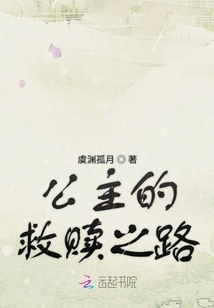 虞渊孤月◎著
公主的
救赎之路
云起书院